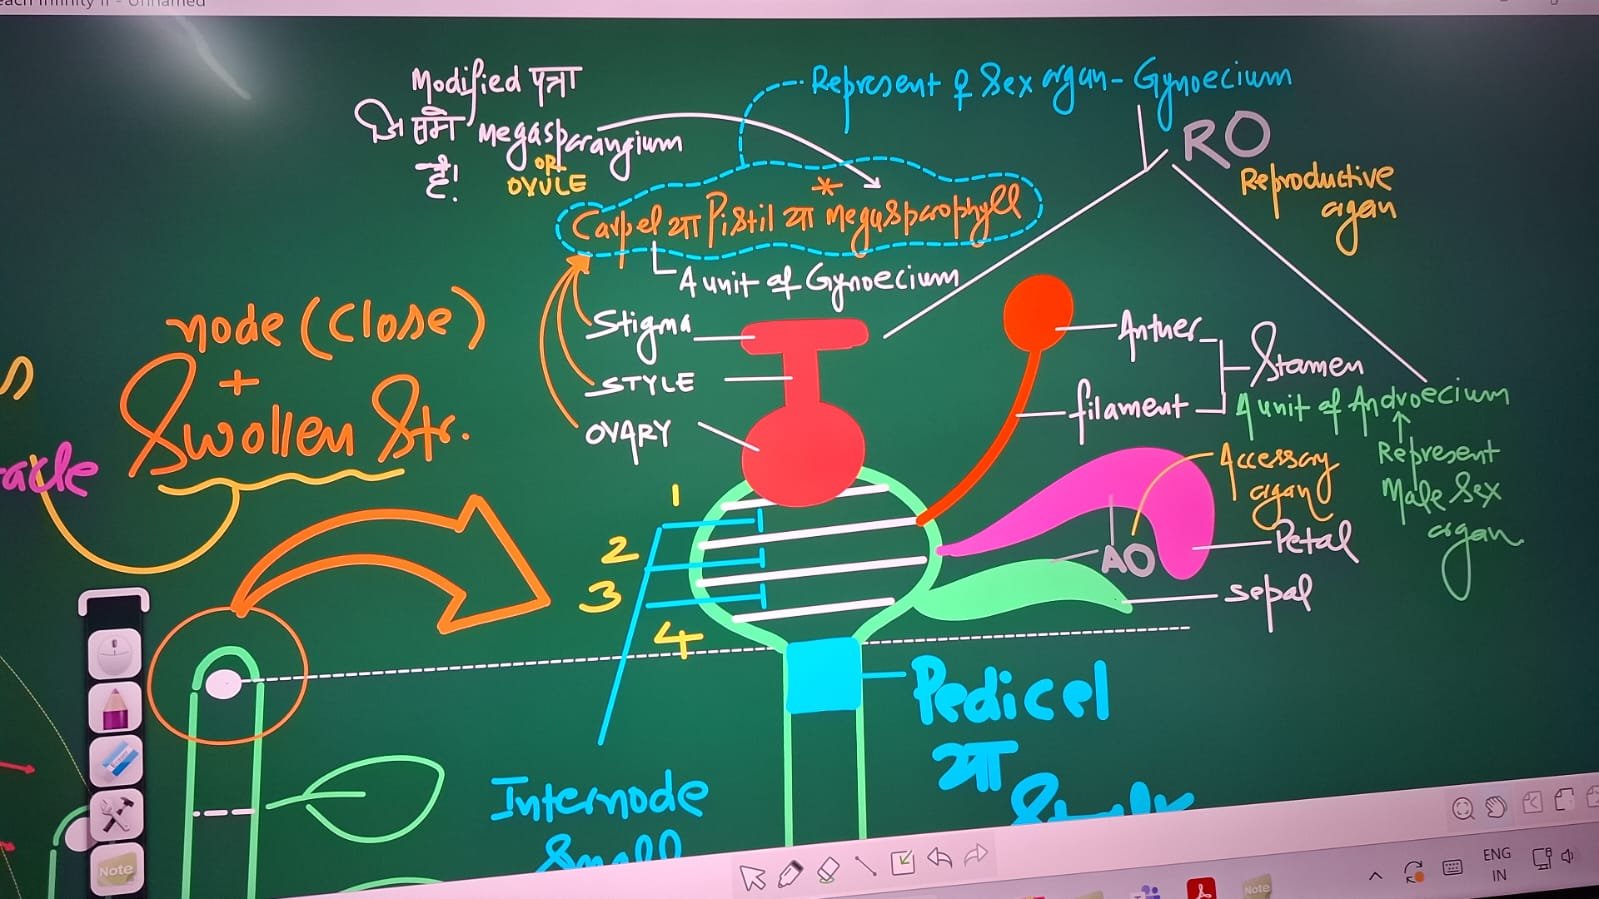 Modified पत्रा
जिसमे Megasporangium
है!
OR
OVULE
Represent ♀ Sex organ - Gynoecium
RO
Reproductive
organ
*
Carpel या Pistil या Megasporophyll
A unit of Gynoecium
Stigma
STYLE
OVARY
Anther
filament
Stamen
A unit of Androecium
Represent
Male Sex
organ
Accessory
organ
AO
Petal
sepal
node (Close)
+
Swollen Str.
1
2
3
4
Pedicel
या
Internode
Small
Note
ENG
IN
Note